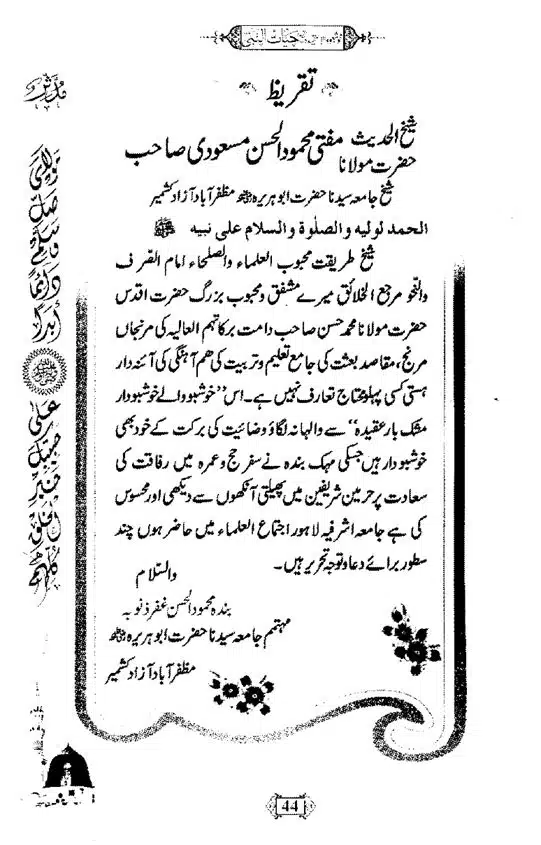 حیات النبی
تقریظ
شیخ الحدیث
حضرت مولانا مفتی محمود الحسن مسعودی صاحب
شیخ جامعہ سیدنا حضرت ابوہریرہؓ مظفر آباد آزاد کشمیر
الحمد لولیه والصلوة والسلام علی نبیه ﷺ
شیخ طریقت محبوب العلماء والصلحاء امام الصرف
والنحو مرجع الخلائق میرے مشفق ومحبوب بزرگ حضرت اقدس
حضرت مولانا محمد حسن صاحب دامت برکاتہم العالیہ کی مرنجاں
مرنج، مقاصد بعثت کی جامع تعلیم وتربیت کی ہم آہنگی کی آئنہ دار
ہستی کسی پہلو محتاج تعارف نہیں ہے۔ اس "خوشبو والے خوشبودار
مشک بار عقیدہ" سے والہانہ لگاؤ وضائیت کی برکت کے خود بھی
خوشبودار ہیں جسکی مہک بندہ نے سفر حج وعمرہ میں رفاقت کی
سعادت پر حرمین شریفین میں پھیلتی آنکھوں سے دیکھی اور محسوس
کی ہے جامعہ اشرفیہ لاہور اجتماع العلماء میں حاضر ہوں چند
سطور برائے دعا وتوجہ تحریر ہیں۔
والسّلام
بندہ محمود الحسن غفر ذنوبہ
مہتمم جامعہ سیدنا حضرت ابوہریرہؓ
مظفر آباد آزاد کشمیر
مدثر
یا رب
صل
وسلم
دائما
ابدا
ﷺ
علی
حبیبک
خیر
الخلق
کلهم
44